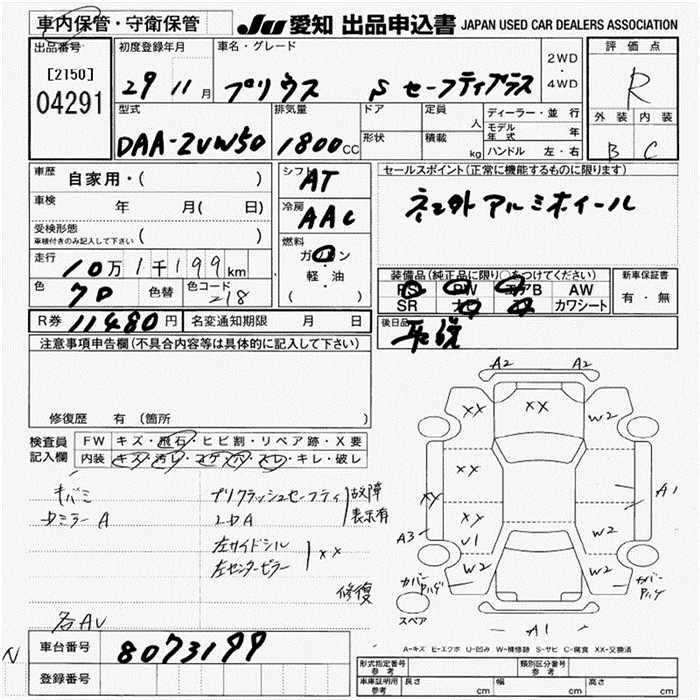 車内保管・守衛保管
JU 愛知 出品申込書 JAPAN USED CAR DEALERS ASSOCIATION
出品番号
[2150]
04291
初度登録年月
29 11月
車名・グレード
プリウス S セーフティプラス
2WD
・
4WD
評価点
R
外装 内装
B C
型式
DAA-ZVW50
排気量
1800CC
ドア
形状
定員 人
積載 kg
ディーラー・並行
モデル年式 年
ハンドル 左・右
車歴 自家用・( )
車検 年 月( 日)
受検形態
車検付きのみ記入して下さい ( )
走行 10万1千199km
色 70 色替 色コード 218
シフト AT
冷房 AAC
燃料
ガソリン
・
軽・油
( )
セールスポイント(正常に機能するものに限ります)
社外アルミホイール
装備品(純正品に限り○をつけてください)
PS PW エアB AW
SR ナビ カワシート
新車保証書
有・無
R券 11480円 名変通知期限 月 日
後日品 取説
注意事項申告欄(不具合内容等は具体的に記入して下さい)
修復歴 有(箇所
検査員
記入欄
FW キズ・飛石・ヒビ割・リペア跡・X要
内装 キズ・汚レ・コゲ・穴・スレ・キレ・破レ
キバミ
Dミラー A
プリクラッシュセーフティ
LDA
故障
表示有
左サイドシル
左センターピラー
XX
修復
各AU
A2 A2
XX XX W2
XX
XX XY W2 A1
A3 W1
W2 W2
カバー
スペア
A1
A-キズ E-エクボ U-凹み W-補修跡 S-サビ C-腐食 XX-交換済
車台番号 8073199
登録番号
形式指定番号
参考
類別区分番号
参考
車庫証明用
参考
長さ cm 幅 cm 高さ cm
N